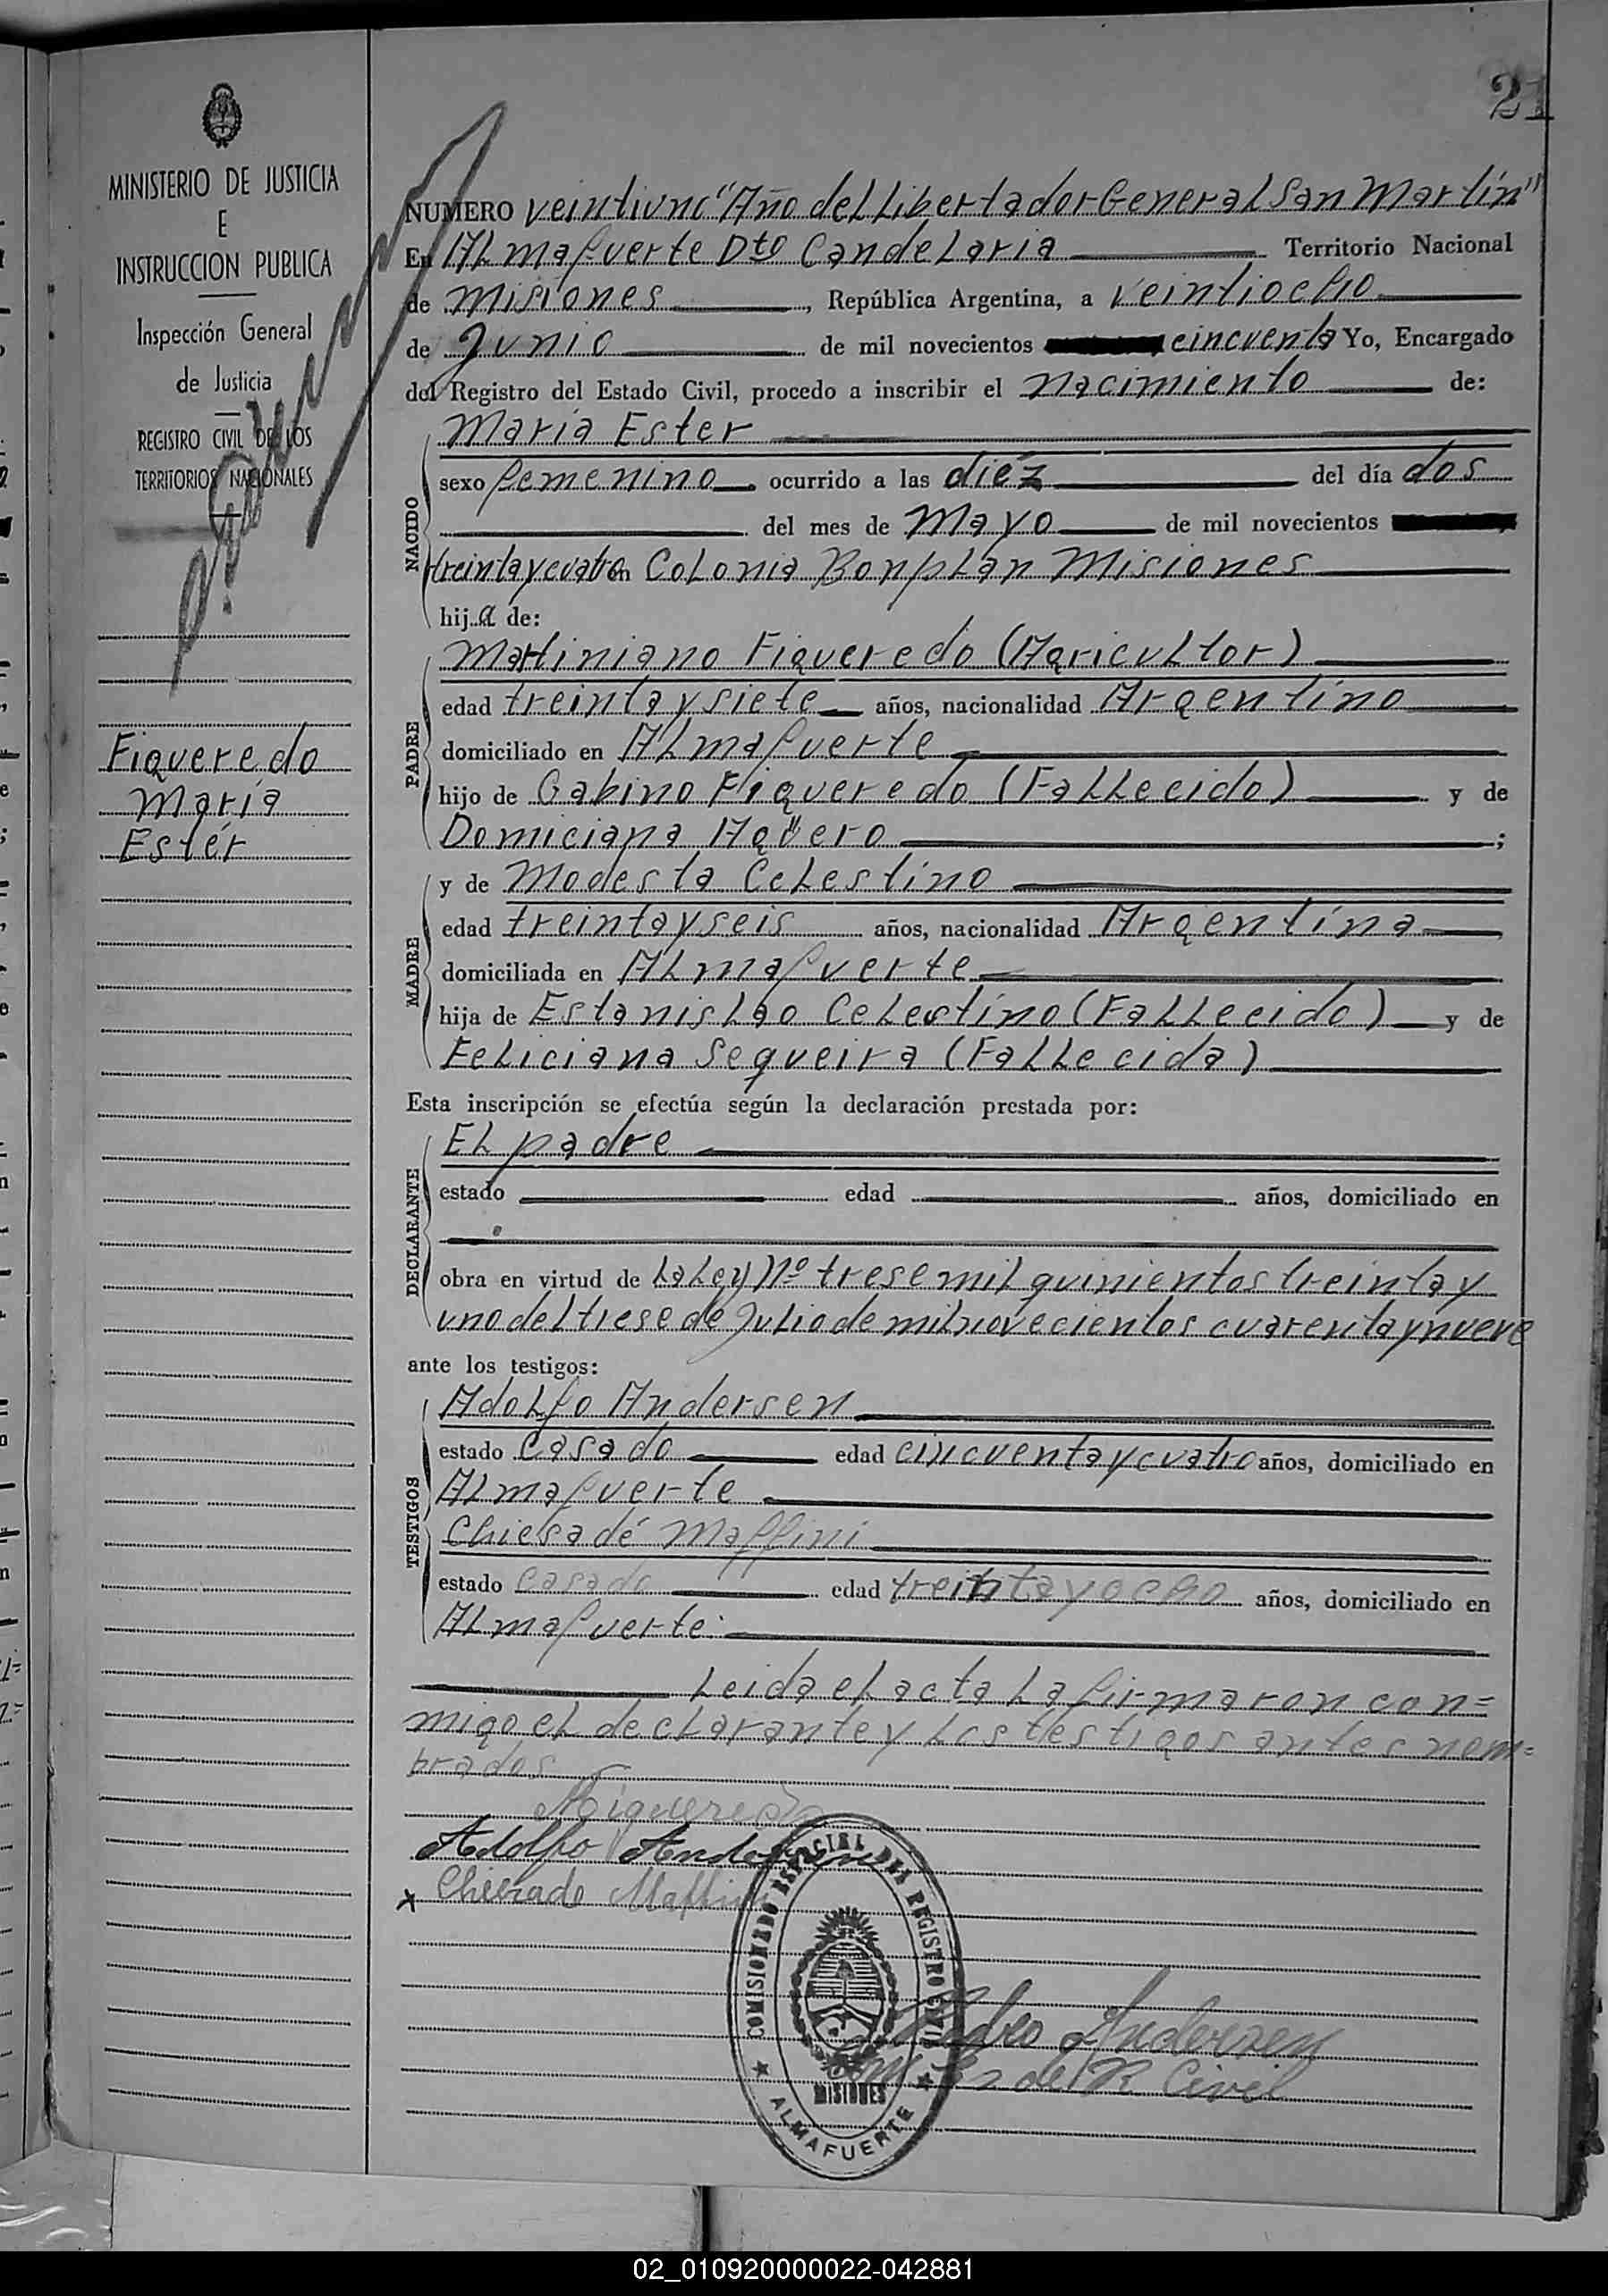 21
MINISTERIO DE JUSTICIA
E
INSTRUCCION PUBLICA
Inspección General
de Justicia
REGISTRO CIVIL DE LOS
TERRITORIOS NACIONALES
Figueredo
María
Estér
NUMERO veintiuno "Año del Libertador General San Martín"
En Almafuerte Dto Candelaria Territorio Nacional
de Misiones, República Argentina, a veintiocho
de Junio de mil novecientos cincuenta Yo, Encargado
del Registro del Estado Civil, procedo a inscribir el nacimiento de:
NACIDO
María Ester
sexo femenino ocurrido a las diéz del día dos
del mes de Mayo de mil novecientos
treinta y cuatro en Colonia Bonplan Misiones
hija de:
PADRE
Martiniano Figueredo (Agricultor)
edad treinta y siete años, nacionalidad Argentino
domiciliado en Almafuerte
hijo de Gabino Figueredo (Fallecido) y de
Domiciana Agüero ;
MADRE
y de Modesta Celestino
edad treinta y seis años, nacionalidad Argentína
domiciliada en Almafuerte
hija de Estanislao Celestíno (Fallecido) y de
Feliciana Sequeira (Fallecida)
Esta inscripción se efectúa según la declaración prestada por:
DECLARANTE
El padre
estado edad años, domiciliado en
obra en virtud de La Ley Nº trese mil quinientos treinta y
uno del trese de Julio de mil novecientos cuarenta y nueve
ante los testigos:
TESTIGOS
Adolfo Andersen
estado casado edad cincuenta y cuatro años, domiciliado en
Almafuerte
Chiesa dé Maffini
estado casado edad treinta y ocho años, domiciliado en
Almafuerte
Leida el acta la firmaron con=
migo el declarante y los testigos antes nom=
brados
Figueredo
Adolfo Andersen
x Chiesade Maffini
COMISIONADO ESPECIAL DEL REGISTRO CIVIL
MISIONES
ALMAFUERTE
Pedro Andersen
de R Civil
02_010920000022-042881